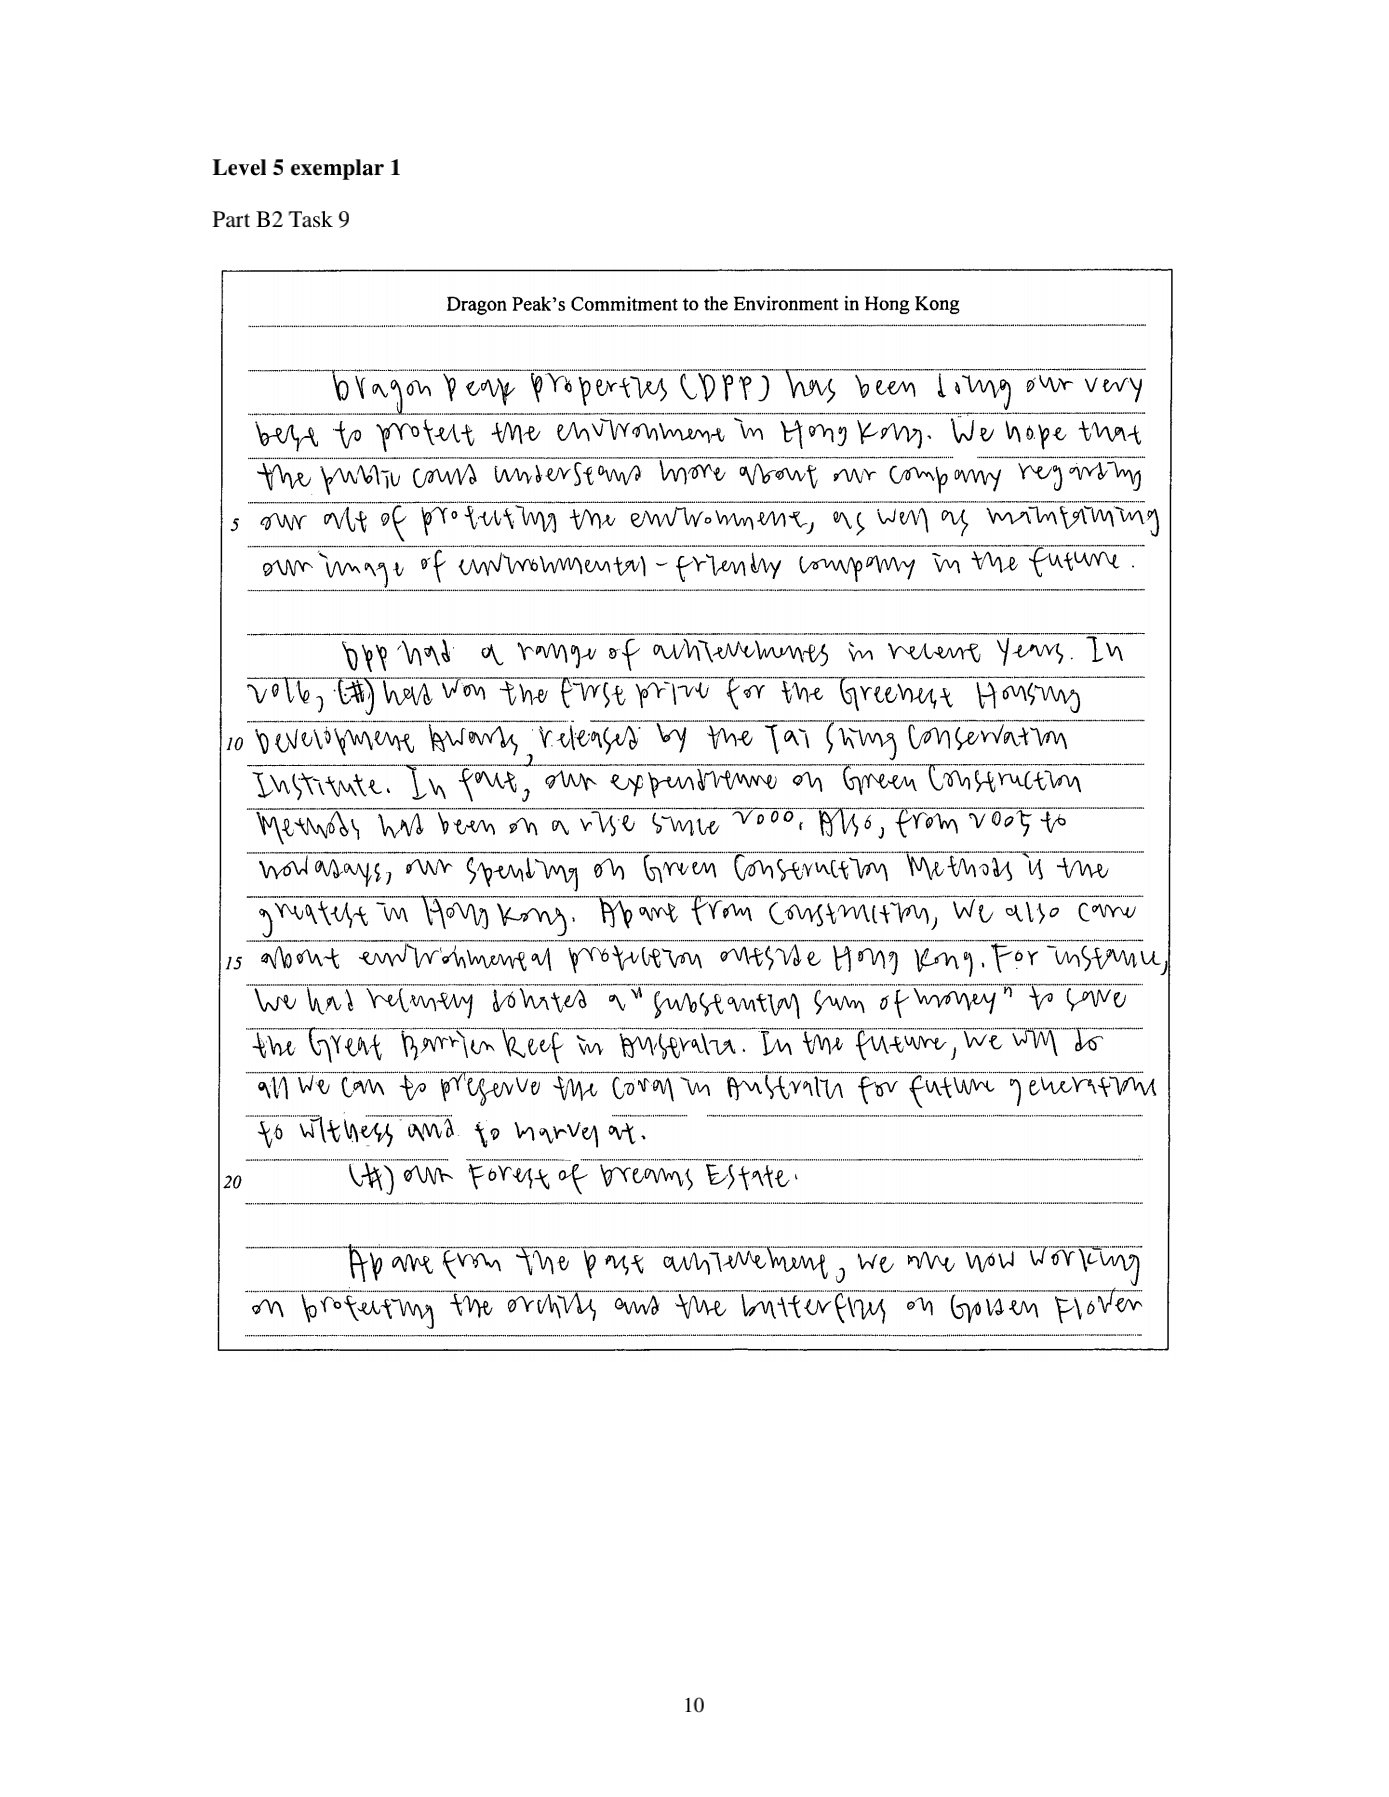 Level 5 exemplar 1
Part B2 Task 9
Dragon Peak's Commitment to the Environment in Hong Kong
Dragon Peak Properties (DPP) has been doing our very
best to protect the environment in Hong Kong. We hope that
the public could understand more about our company regarding
5 our act of protecting the environment, as well as maintaining
our image of environmental-friendly company in the future.
DPP had a range of achievements in recent years. In
2016, (#) had won the first prize for the Greenest Housing
10 Development Awards, released by the Tai Shing Conservation
Institute. In fact, our expenditure on Green Construction
Methods had been on a rise since 2000. Also, from 2005 to
nowadays, our spending on Green Construction Methods is the
greatest in Hong Kong. Apart from construction, we also care
15 about environmental protection outside Hong Kong. For instance,
we had recently donated a "substantial sum of money" to save
the Great Barrier Reef in Australia. In the future, we will do
all we can to preserve the coral in Australia for future generations
to witness and to marvel at.
20 (#) our Forest of Dreams Estate.
Apart from the past achievement, we are now working
on protecting the orchids and the butterflies on Golden Flower
10